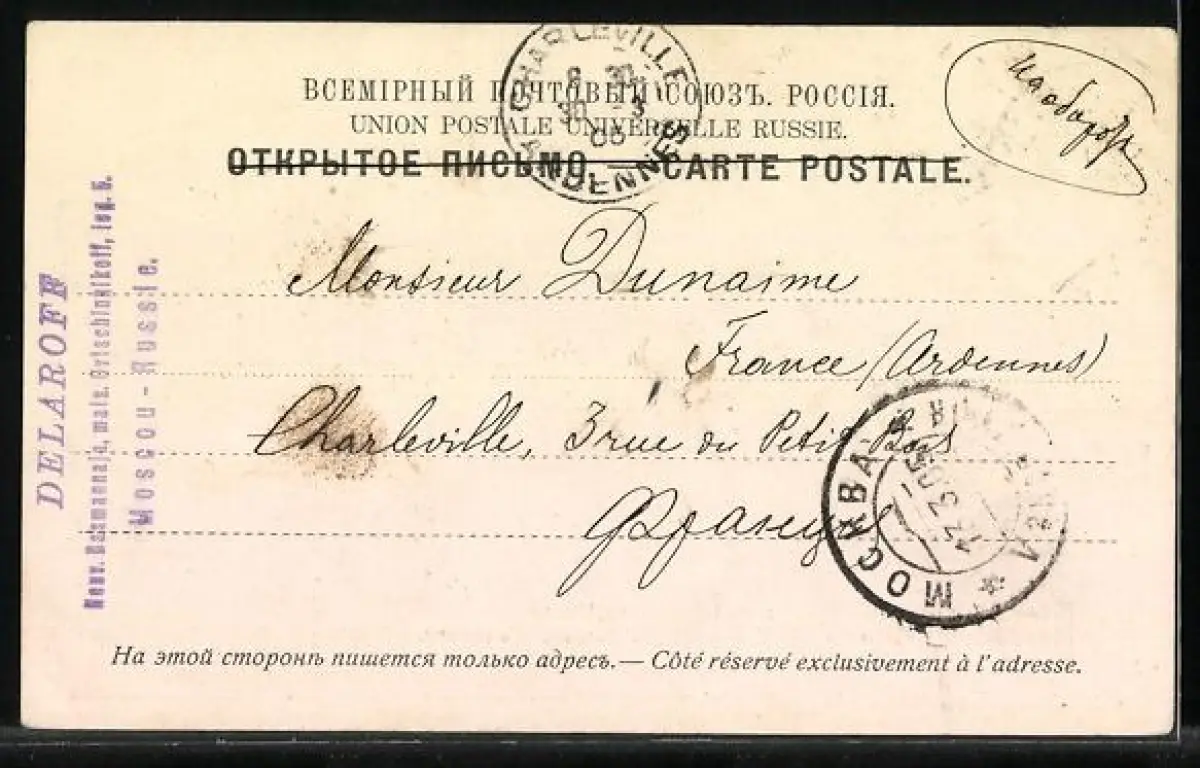 ВСЕМІРНЫЙ ПОЧТОВЫЙ СОЮЗЪ. РОССІЯ.
UNION POSTALE UNIVERSELLE RUSSIE.
ОТКРЫТОЕ ПИСЬМО. — CARTE POSTALE.
CHARLEVILLE
30 3
05
ARDENNES
на оборотѣ
Monsieur Dunaime
France (Ardennes)
Charleville, 3 rue du Petit-Bois
Франція
МОСКВА
3 05
DELAROFF
Nouv. Basmannaïa, mais. Grischinikoff, log. 5.
Moscou-Russie.
На этой сторонѣ пишется только адресъ.— Côté réservé exclusivement à l'adresse.